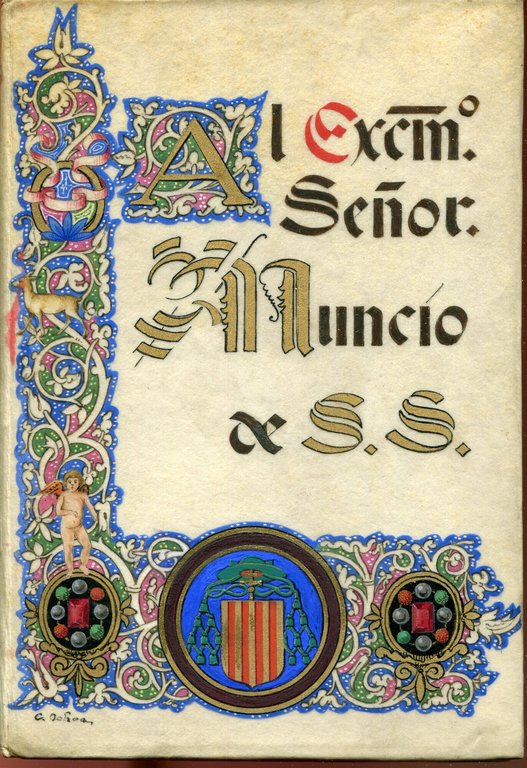 Al Excmo.
Señor.
Nuncio
de S. S.